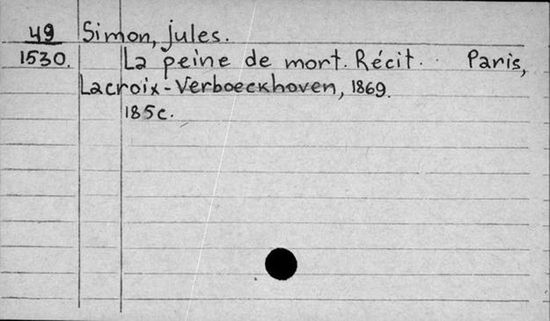 49 Simon, jules.
1530. La peine de mort. Récit. Paris,
Lacroix-Verboeckhoven, 1869.
185c.